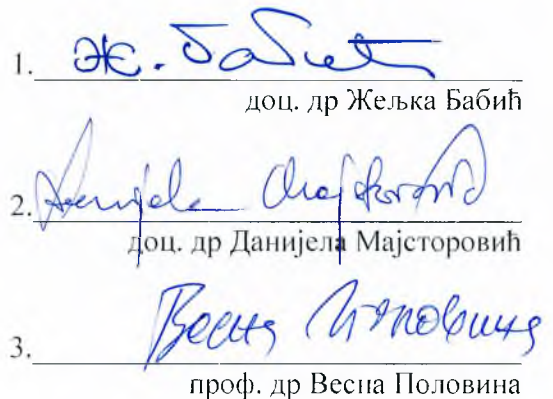 1. Ж. Бабић
доц. др Жељка Бабић
2. Danijela Majstorović
доц. др Данијела Мајсторовић
3. Весна Половина
проф. др Весна Половина